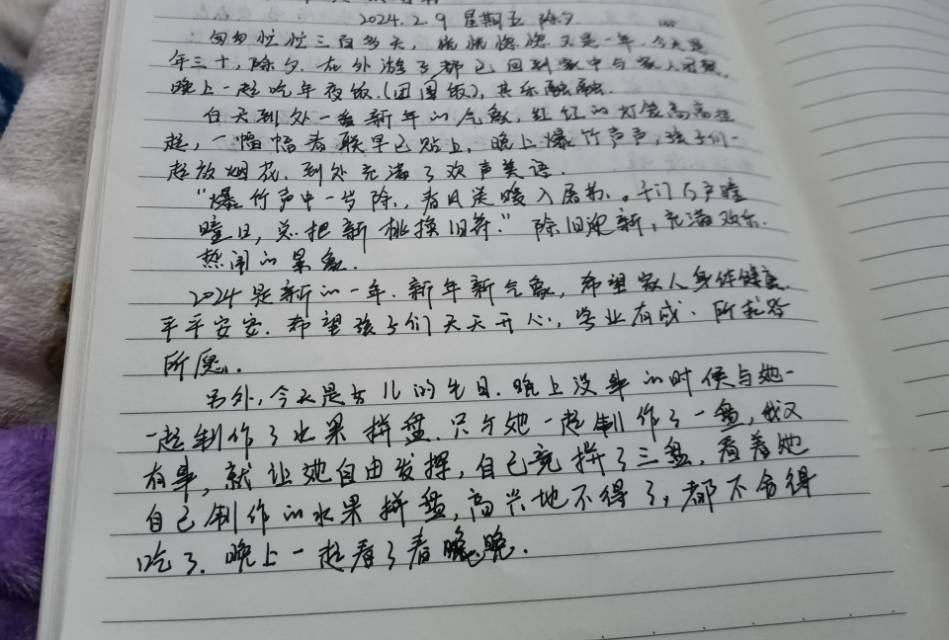 2024.2.9 星期五 除夕
匆匆忙忙三百多天，恍恍惚惚又是一年，今天是
年三十，除夕。在外游子都已回到家中与家人团聚，
晚上一起吃年夜饭（团圆饭），其乐融融。
白天到处一番新年的气象，红红的灯笼高高挂
起，一幅幅春联早已贴上，晚上爆竹声声，孩子们一
起放烟花，到处充满了欢声笑语。
“爆竹声中一岁除，春风送暖入屠苏。千门万户曈
曈日，总把新桃换旧符。”除旧迎新，充满欢乐、
热闹的景象。
2024是新的一年，新年新气象，希望家人身体健康、
平平安安，希望孩子们天天开心，学业有成、所求皆
所愿。
另外，今天是女儿的生日，晚上没事的时候与她一
起制作了水果拼盘，只与她一起制作了一盘，我又
有事，就让她自由发挥，自己竟拼了三盘，看着她
自己制作的水果拼盘，高兴地不得了，都不舍得
吃了。晚上一起看了春晚。